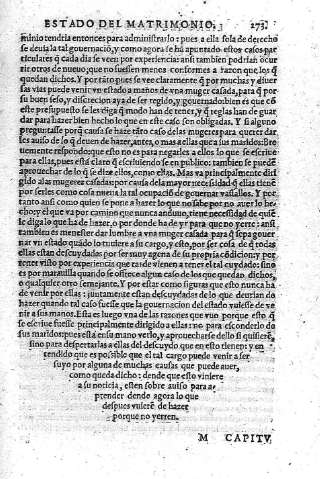 ESTADO DEL MATRIMONIO. 273.
minio tendria entonces para administrarlo: pues a ella sola de derecho
se deuia la tal gouernació, y como agora se há apuntado estos casos par
ticulares q̃ cada dia se veen por experiencia: ansi tambien podriã ocu
rir otros de nueuo, que no fuessen menos conformes a razon que los q̃
quedan dichos. Y por tãto pues se vee claramente q̃ por muchas y diuer
sas vias puede venir vn estado a manos de vna muger casada, para q̃ por
su buen seso, y discrecion aya de ser regido, y gouernado: bien es que cõ
este presupuesto se les diga q̃ modo han de tener, y q̃ reglas han de guar
dar para hazer bien hecho lo que en este caso son obligadas. Y si alguno
preguntasse por q̃ causa se haze tãto caso de las mugeres para querer dar
les auiso de lo q̃ deuen de hazer, antes, o mas a ellas que a sus maridos: bre
uemente respondo que esto no es para negarles a ellos lo que se escriue
para ellas, pues está claro q̃ escriuiendose en publico: tambien se puedẽ
aprouechar de lo q̃ se dize ellos, como ellas. Mas va principalmente diri
gido a las mugeres casadas: por causa de la mayor necessidad q̃ ellas tienẽ
por serles como cosa nueua la tal ocupació de gouernar vasallos. Y por
tanto ansi como quien se pone a hazer lo que no sabe por no auer lo he
cho: y el que va por camino que nunca anduuo, tiene necessidad de quiẽ
le diga lo que ha de hazer, o por donde ha de yr para que no yerre: ansi
tambien es menester dar lumbre a vna muger casada para q̃ sepa gouer
nar vn estado quãdo lo tuuiere a su cargo, y esto, por ser cosa de q̃ todas
ellas estan descuydadas por ser muy agena de su propria cõdicion: y por
tener visto por experiencia que tarde vienen a tener el tal cuydado: sino
es por marauilla quando se offrece algun caso de los que quedan dichos,
o qualquier otro semejante. Y por estar como figuras que esto nunca ha
de venir por ellas: juntamente estan descuydadas de lo que deurian de
hazer quando tal caso fuesse que la gouernacion del estado viniesse de ve
nir a sus manos. Esta es luego vna de las razones que vuo porque esto q̃
se escriue fuesse principalmente dirigido a ellas: no para esconderlo de
sus maridos: pues està en su mano verlo, y aprouecharse dello si quisierẽ,
sino para despertarlas a ellas del descuydo que en esto tienen: y en
tendido que es possible que el tal cargo puede venir a ser
suyo por alguna de muchas causas que puede auer,
como queda dicho: dende que esto viniere
a su noticia, esten sobre auiso para a-
prender dende agora lo que
despues vuierẽ de hazer
porque no yerren.
M CAPITV.